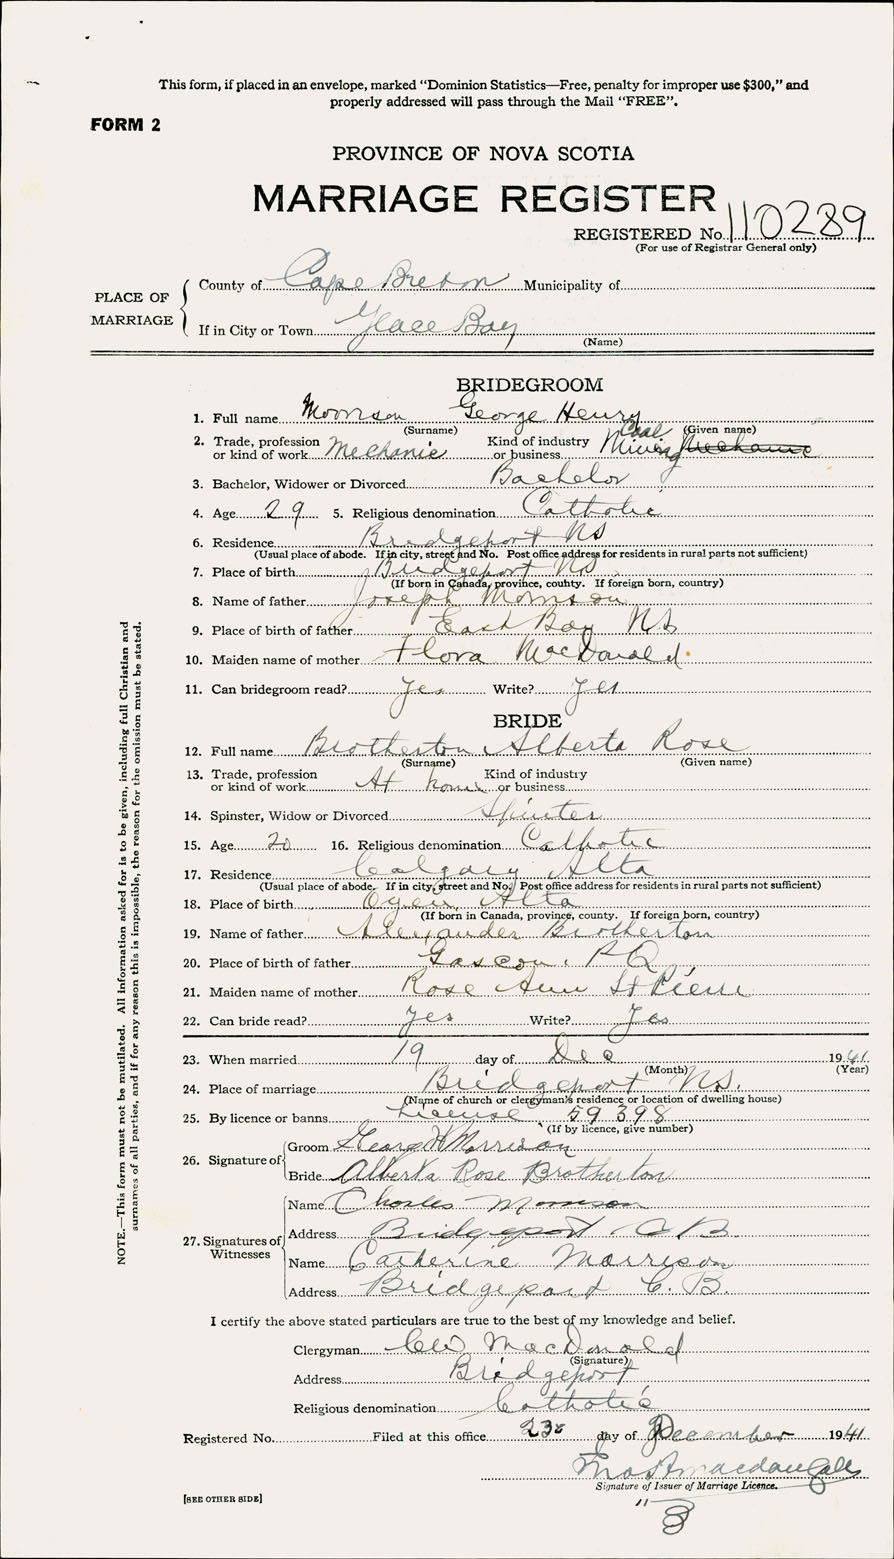 This form, if placed in an envelope, marked "Dominion Statistics—Free, penalty for improper use $300," and
properly addressed will pass through the Mail "FREE".
FORM 2
PROVINCE OF NOVA SCOTIA
MARRIAGE REGISTER
REGISTERED No. 110289
(For use of Registrar General only)
PLACE OF MARRIAGE
County of Cape Breton Municipality of
If in City or Town Glace Bay
(Name)
BRIDEGROOM
1. Full name Morrison George Henry
(Surname) (Given name)
2. Trade, profession or kind of work Mechanic Kind of industry or business Coal Mining Mechanic
3. Bachelor, Widower or Divorced Bachelor
4. Age 29 5. Religious denomination Catholic
6. Residence Bridgeport NS
(Usual place of abode. If in city, street and No. Post office address for residents in rural parts not sufficient)
7. Place of birth Bridgeport NS
(If born in Canada, province, county. If foreign born, country)
8. Name of father Joseph Morrison
9. Place of birth of father East Bay NS
10. Maiden name of mother Flora MacDonald
11. Can bridegroom read? Yes Write? Yes
BRIDE
12. Full name Brotherton Alberta Rose
(Surname) (Given name)
13. Trade, profession or kind of work At home Kind of industry or business
14. Spinster, Widow or Divorced Spinster
15. Age 20 16. Religious denomination Catholic
17. Residence Calgary Alta
(Usual place of abode. If in city, street and No. Post office address for residents in rural parts not sufficient)
18. Place of birth Oyen Alta
(If born in Canada, province, county. If foreign born, country)
19. Name of father Alexander Brotherton
20. Place of birth of father Gascon, PQ
21. Maiden name of mother Rose Ann St Pierre
22. Can bride read? Yes Write? Yes
23. When married 19 day of Dec 1941
(Month) (Year)
24. Place of marriage Bridgeport NS.
(Name of church or clergyman's residence or location of dwelling house)
25. By licence or banns License 59398
(If by licence, give number)
26. Signature of
Groom George H Morrison
Bride Alberta Rose Brotherton
27. Signatures of Witnesses
Name Charles Morrison
Address Bridgeport C B.
Name Catherine Morrison
Address Bridgeport C. B.
I certify the above stated particulars are true to the best of my knowledge and belief.
Clergyman MacDonald
(Signature)
Address Bridgeport
Religious denomination Catholic
Registered No. Filed at this office 23 day of December 1941
Signature of Issuer of Marriage Licence.
[SEE OTHER SIDE]
NOTE.—This form must not be mutilated. All information asked for is to be given, including full Christian and
surnames of all parties, and if for any reason this is impossible, the reason for the omission must be stated.